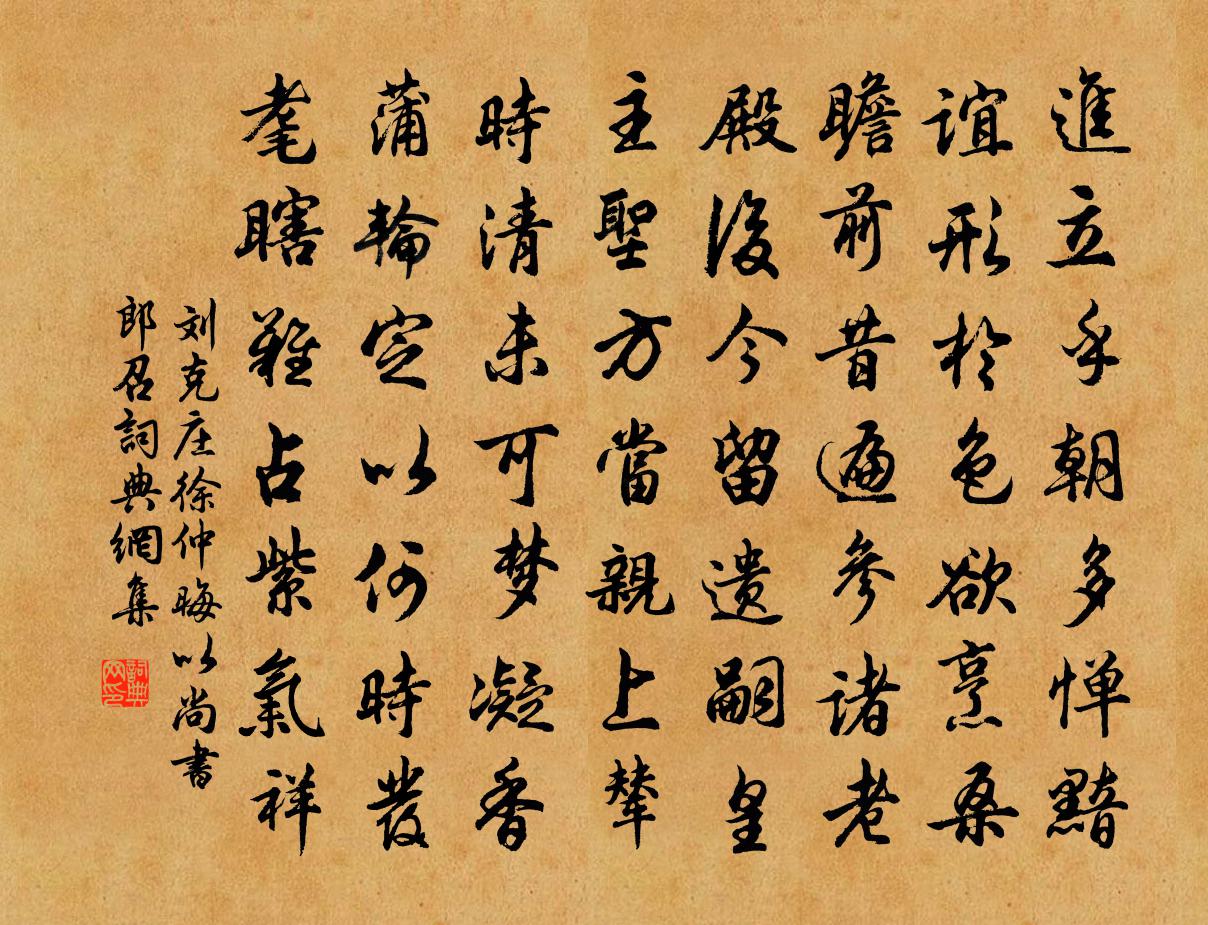 進立乎朝多惮黯
誼形於色欲烹桑
瞻前昔遍參诸老
殿後今留遗嗣皇
主聖方當親上辇
時清未可梦凝香
蒲輪定以何時發
耄瞎難占紫氣祥
刘克庄徐仲晦以尚書
郎召詞典網集
詞典网印